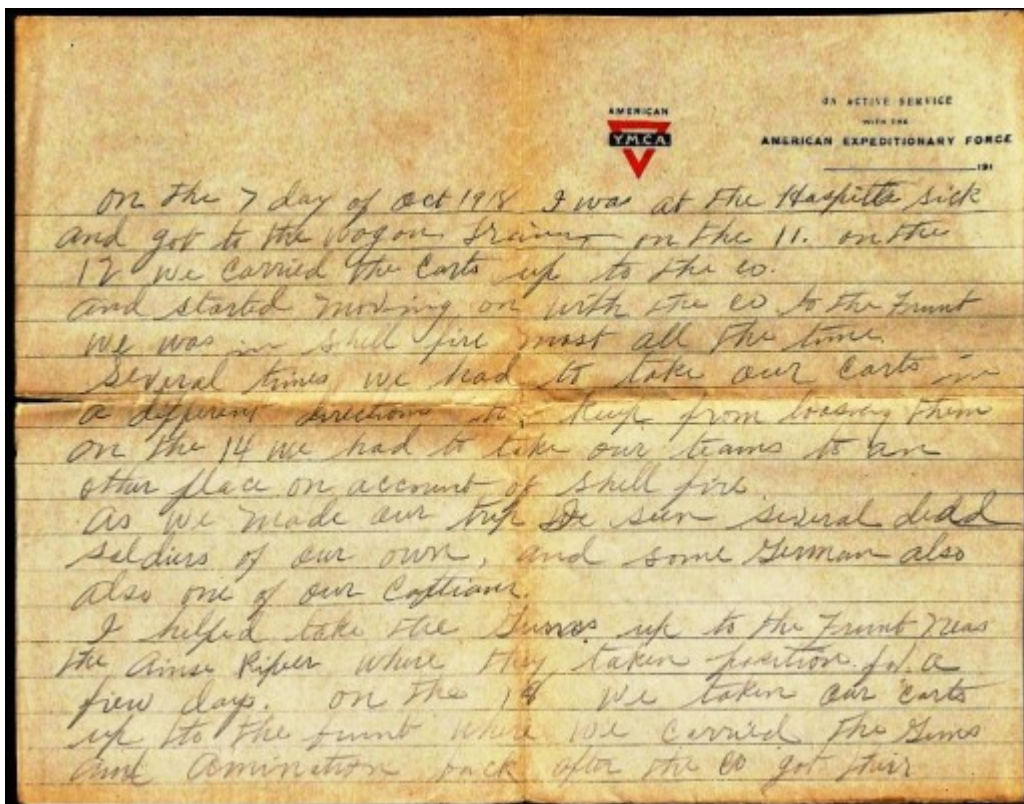 AMERICAN
Y.M.C.A.
ON ACTIVE SERVICE
WITH THE
AMERICAN EXPEDITIONARY FORCE
191
On the 7 day of Oct 1918 I was at the Haspitle sick
and got to the wagon on the 11. on the
12 we carried the carts up to the co.
and started moving on with the co to the Frunt
we was in shell fire most all the time.
Several times we had to take our carts in
a different directions to keep from loosing them
on the 14 we had to take our teams to an
other place on account of shell fire.
As we made our trip We seen several dead
soldiers of our own, and some German also
also one of our
I helped take the Gunns up to the Frunt near
the Ainse River where they taken position for a
few days. on the 18 we taken our carts
up to the frunt where we carried the Guns
and Amination back after the co got their